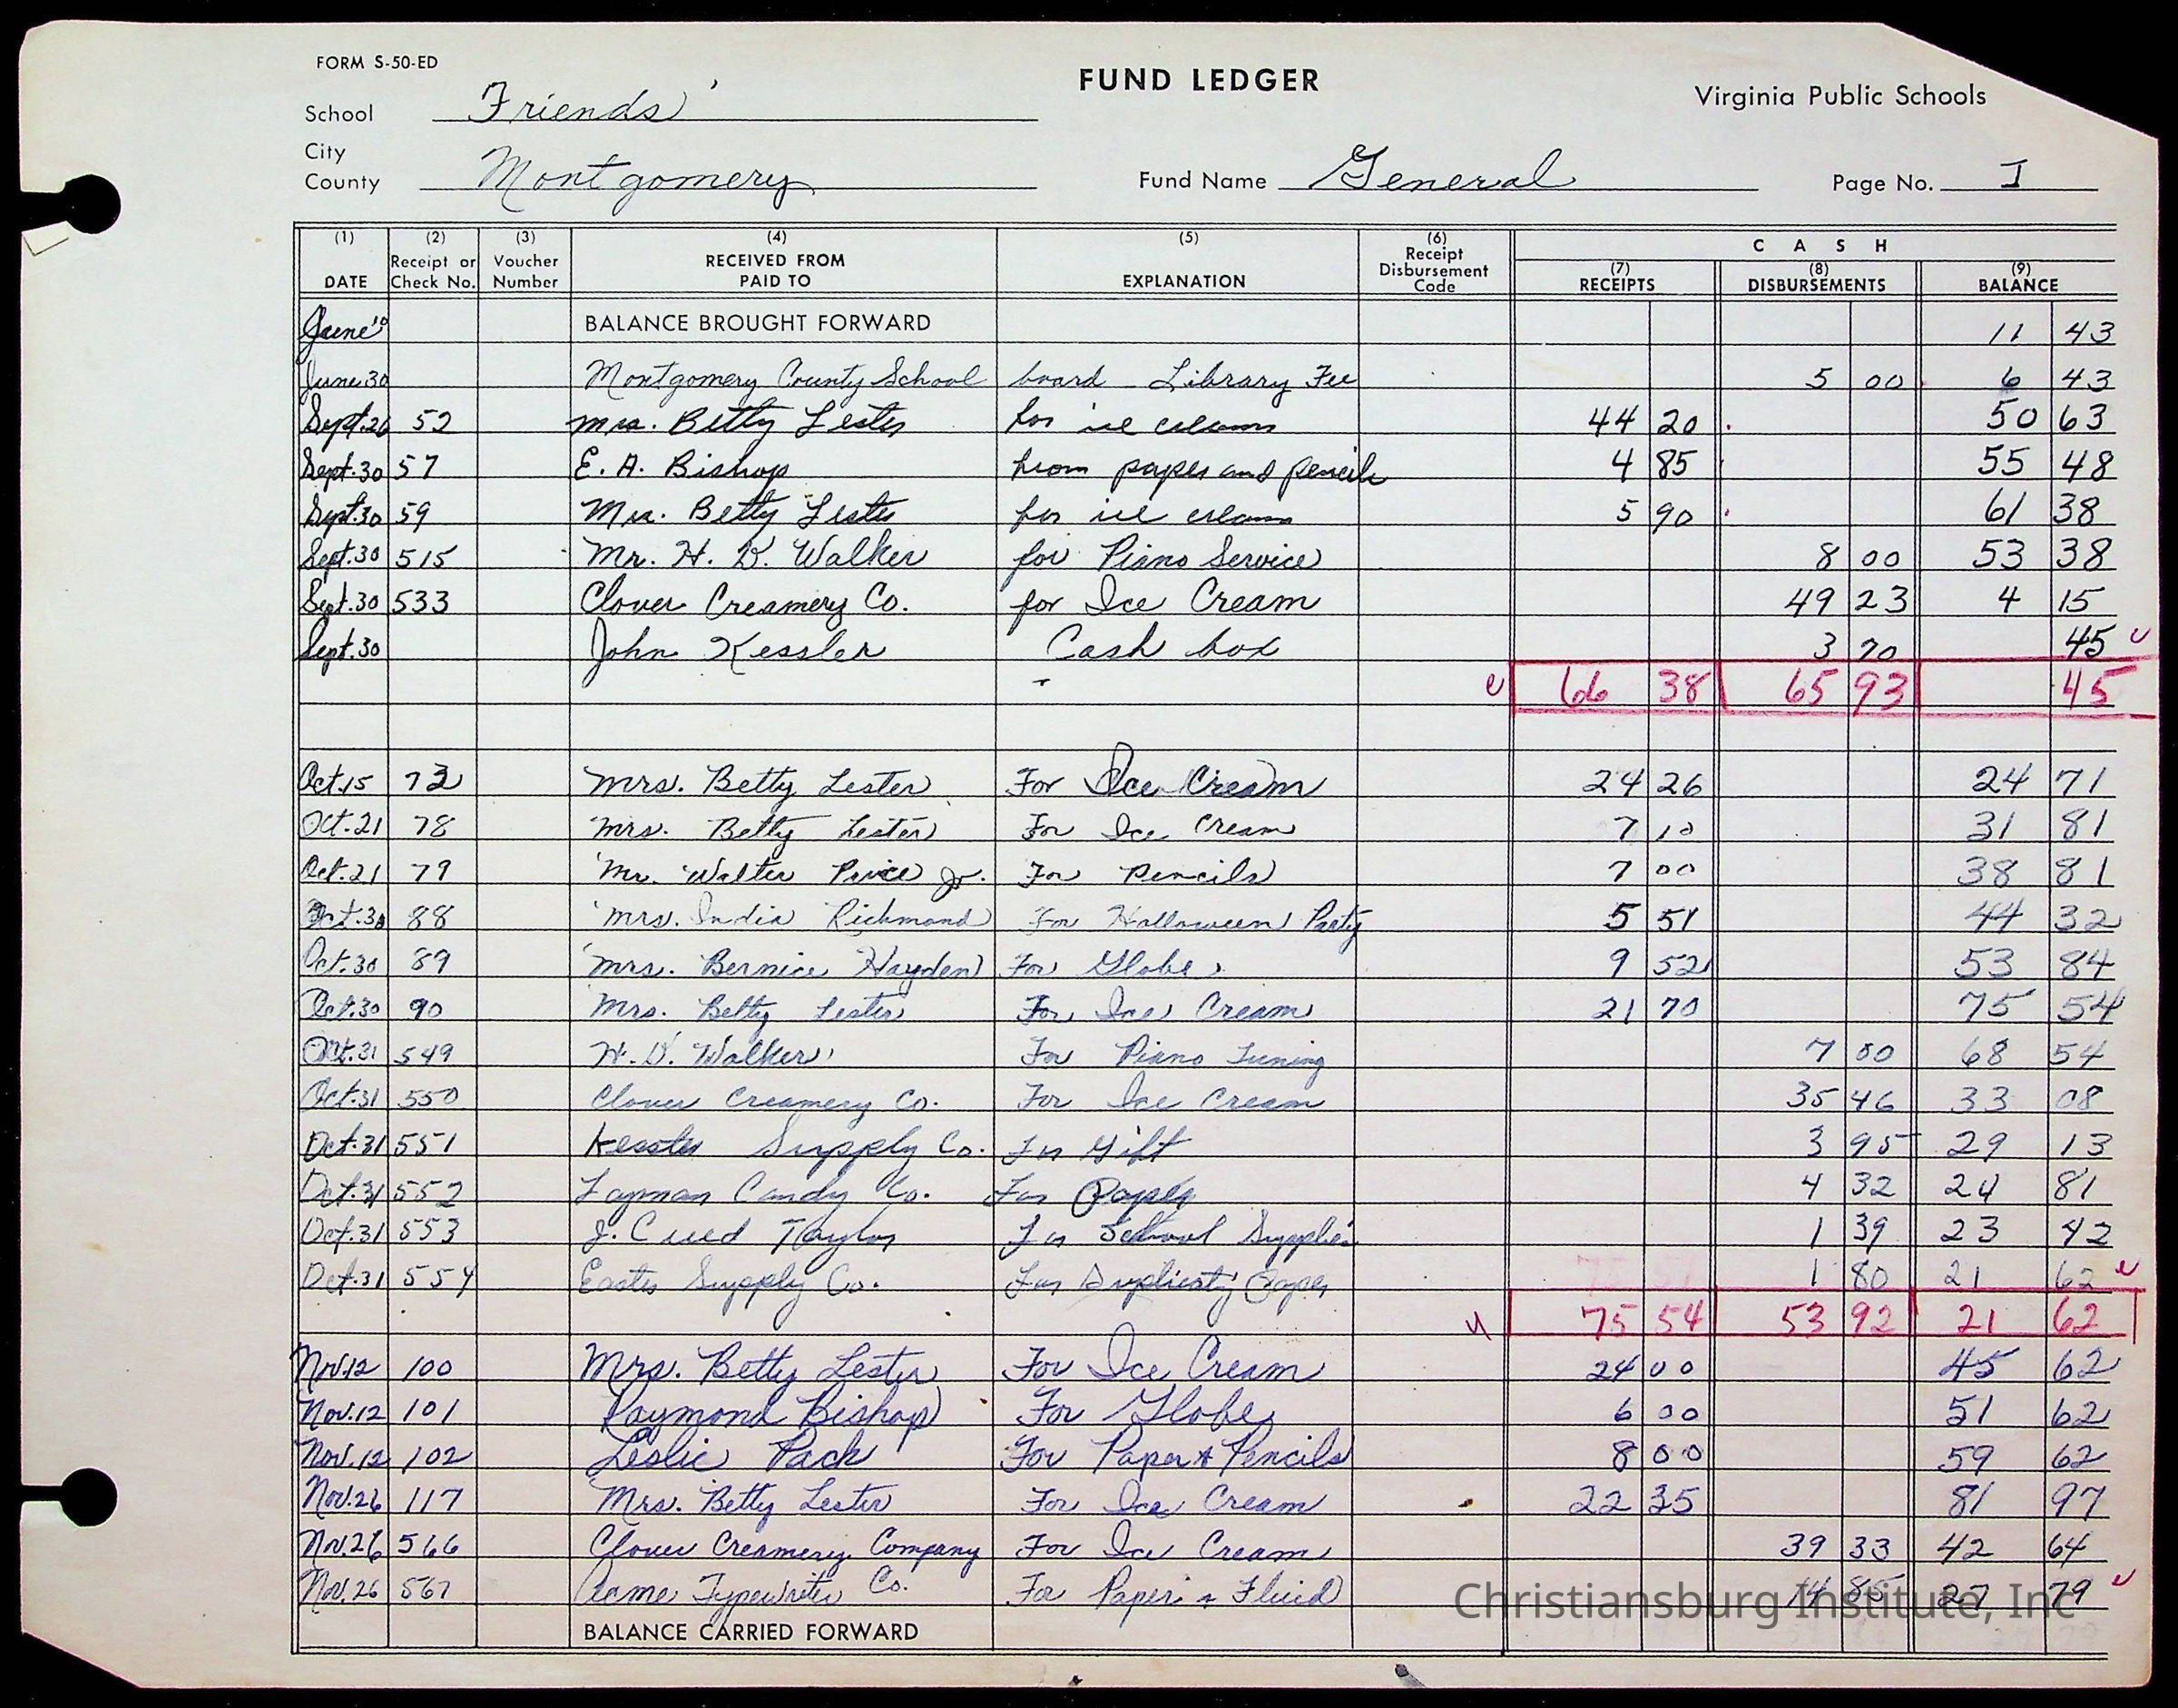 FORM S-50-ED
FUND LEDGER
Virginia Public Schools
School Friends'
City
County Montgomery
Fund Name General
Page No. I
(1) (2) (3) (4) (5) (6) C A S H
DATE Receipt or Check No. Voucher Number RECEIVED FROM PAID TO EXPLANATION Receipt Disbursement Code (7) RECEIPTS (8) DISBURSEMENTS (9) BALANCE
June 10 BALANCE BROUGHT FORWARD 11 43
June 30 Montgomery County School board - Library Fee 5 00 6 43
Sept. 26 52 Mrs. Betty Lester for ice cream 44 20 50 63
Sept. 30 57 E. A. Bishop from paper and pencils 4 85 55 48
Sept. 30 59 Mrs. Betty Lester for ice cream 5 90 61 38
Sept. 30 515 Mr. H. D. Walker for Piano Service 8 00 53 38
Sept. 30 533 Clover Creamery Co. for Ice Cream 49 23 4 15
Sept. 30 John Kessler Cash box 3 70 45
66 38 65 93 45
Oct. 15 73 Mrs. Betty Lester For Ice Cream 24 26 24 71
Oct. 21 78 Mrs. Betty Lester For Ice Cream 7 10 31 81
Oct. 21 79 Mr. Walter Price Jr. For Pencils 7 00 38 81
Oct. 30 88 Mrs. India Richmond For Halloween Party 5 51 44 32
Oct. 30 89 Mrs. Bernice Hayden For Globe 9 52 53 84
Oct. 30 90 Mrs. Betty Lester For Ice Cream 21 70 75 54
Oct. 31 549 H. D. Walker For Piano Tuning 7 00 68 54
Oct. 31 550 Clover Creamery Co. For Ice Cream 35 46 33 08
Oct. 31 551 Kessler Supply Co. For Gift 3 95 29 13
Oct. 31 552 Layman Candy Co. For Paper 4 32 24 81
Oct. 31 553 J. Taylor For School Supplies 1 39 23 42
Oct. 31 554 Supply Co. For Paper 1 80 21 62
75 54 53 92 21 62
Nov. 12 100 Mrs. Betty Lester For Ice Cream 24 00 45 62
Nov. 12 101 Raymond Bishop For Globe 6 00 51 62
Nov. 12 102 Leslie Pack For Paper & Pencils 8 00 59 62
Nov. 26 117 Mrs. Betty Lester For Ice Cream 22 35 81 97
Nov. 26 566 Clover Creamery Company For Ice Cream 39 33 42 64
Nov. 26 567 Acme Typewriter Co. For Paper & Fluid 14 85 27 79
Christiansburg Institute, Inc
BALANCE CARRIED FORWARD